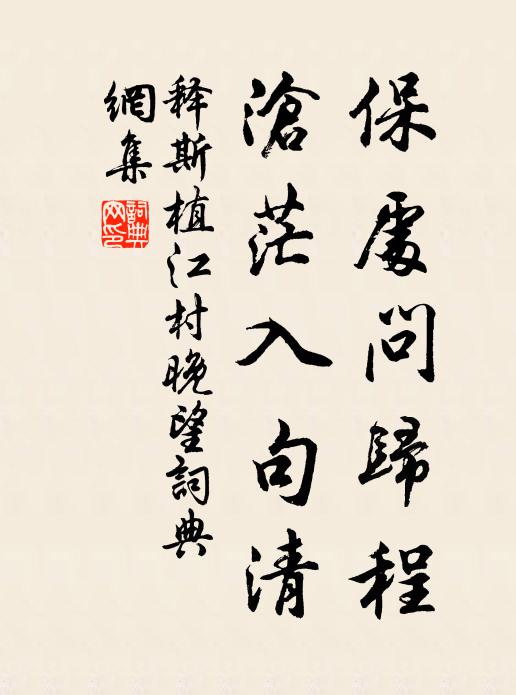 保處問歸程
滄茫入句清
释斯植江村晚望詞典
網集
詞典
网印